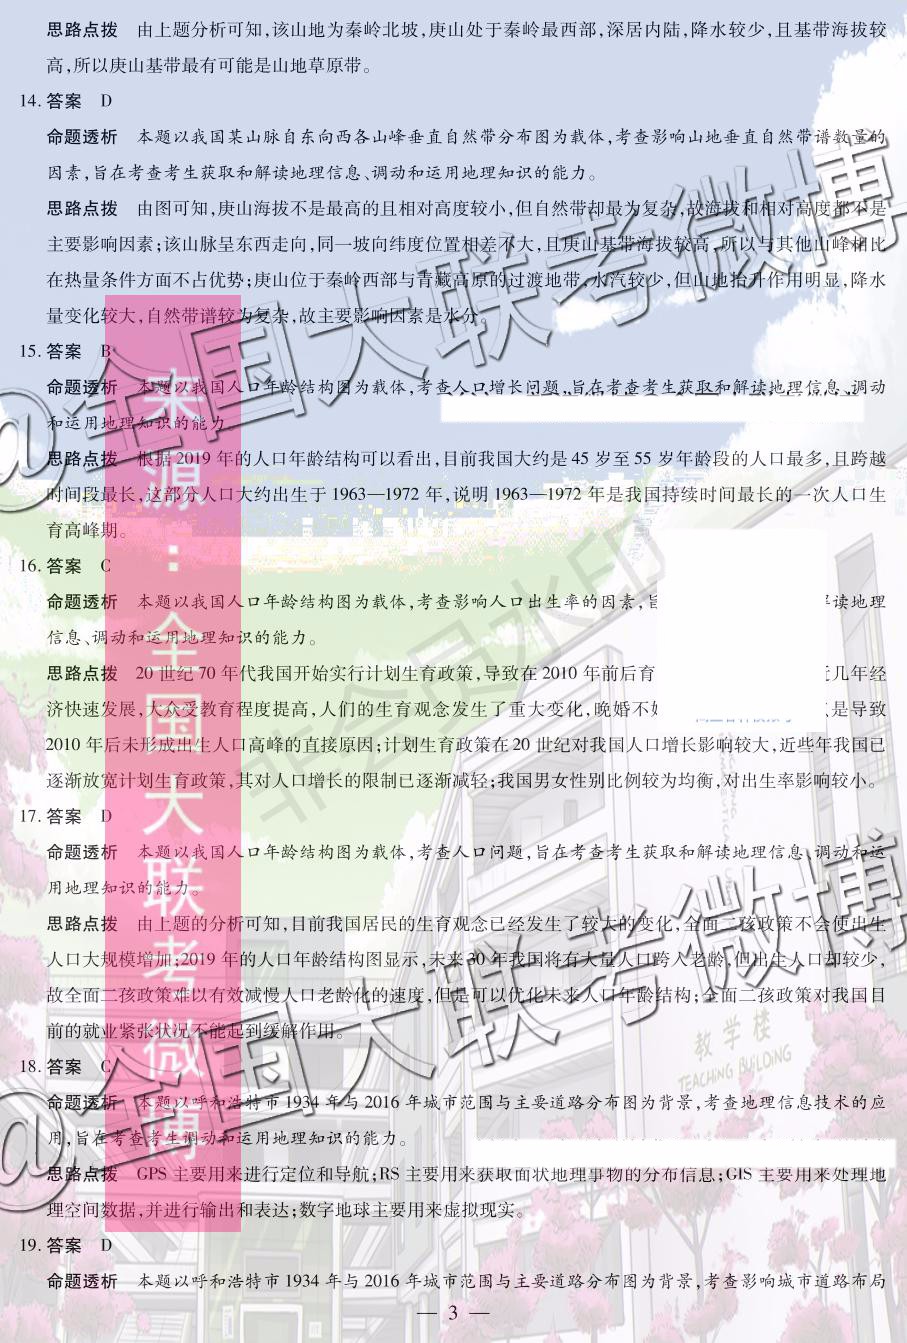 思路点拨　由上题分析可知,该山地为秦岭北坡,庚山处于秦岭最西部,深居内陆,降水较少,且基带海拔较
高,所以庚山基带最有可能是山地草原带。
14. 答案　D
命题透析　本题以我国某山脉自东向西各山峰垂直自然带分布图为载体,考查影响山地垂直自然带谱数量的
因素,旨在考查考生获取和解读地理信息、调动和运用地理知识的能力。
思路点拨　由图可知,庚山海拔不是最高的且相对高度较小,但自然带却最为复杂,故海拔和相对高度都不是
主要影响因素;该山脉呈东西走向,同一坡向纬度位置相差不大,且庚山基带海拔较高,所以与其他山峰相比
在热量条件方面不占优势;庚山位于秦岭西部与青藏高原的过渡地带,水汽较少,但山地抬升作用明显,降水
量变化较大,自然带谱较为复杂,故主要影响因素是水分。
15. 答案　B
命题透析　本题以我国人口年龄结构图为载体,考查人口增长问题,旨在考查考生获取和解读地理信息、调动
和运用地理知识的能力。
思路点拨　根据 2019 年的人口年龄结构可以看出,目前我国大约是 45 岁至 55 岁年龄段的人口最多,且跨越
时间段最长,这部分人口大约出生于 1963—1972 年,说明 1963—1972 年是我国持续时间最长的一次人口生
育高峰期。
16. 答案　C
命题透析　本题以我国人口年龄结构图为载体,考查影响人口出生率的因素,旨 解读地理
信息、调动和运用地理知识的能力。
思路点拨　20 世纪 70 年代我国开始实行计划生育政策,导致在 2010 年前后育 近几年经
济快速发展,大众受教育程度提高,人们的生育观念发生了重大变化,晚婚不 是导致
2010 年后未形成出生人口高峰的直接原因;计划生育政策在 20 世纪对我国人口增长影响较大,近些年我国已
逐渐放宽计划生育政策,其对人口增长的限制已逐渐减轻;我国男女性别比例较为均衡,对出生率影响较小。
17. 答案　D
命题透析　本题以我国人口年龄结构图为载体,考查人口问题,旨在考查考生获取和解读地理信息、调动和运
用地理知识的能力。
思路点拨　由上题的分析可知,目前我国居民的生育观念已经发生了较大的变化,全面二孩政策不会使出生
人口大规模增加;2019 年的人口年龄结构图显示,未来 30 年我国将有大量人口跨入老龄,但出生人口却较少,
故全面二孩政策难以有效减慢人口老龄化的速度,但是可以优化未来人口年龄结构;全面二孩政策对我国目
前的就业紧张状况不能起到缓解作用。
18. 答案　C
命题透析　本题以呼和浩特市 1934 年与 2016 年城市范围与主要道路分布图为背景,考查地理信息技术的应
用,旨在考查考生调动和运用地理知识的能力。
思路点拨　GPS 主要用来进行定位和导航;RS 主要用来获取面状地理事物的分布信息;GIS 主要用来处理地
理空间数据,并进行输出和表达;数字地球主要用来虚拟现实。
19. 答案　D
命题透析　本题以呼和浩特市 1934 年与 2016 年城市范围与主要道路分布图为背景,考查影响城市道路布局
— 3 —
@全国大联考微博
@全国大联考微博
来源：全国大联考微博
非会员水印
教学楼
TEACHING BUILDING